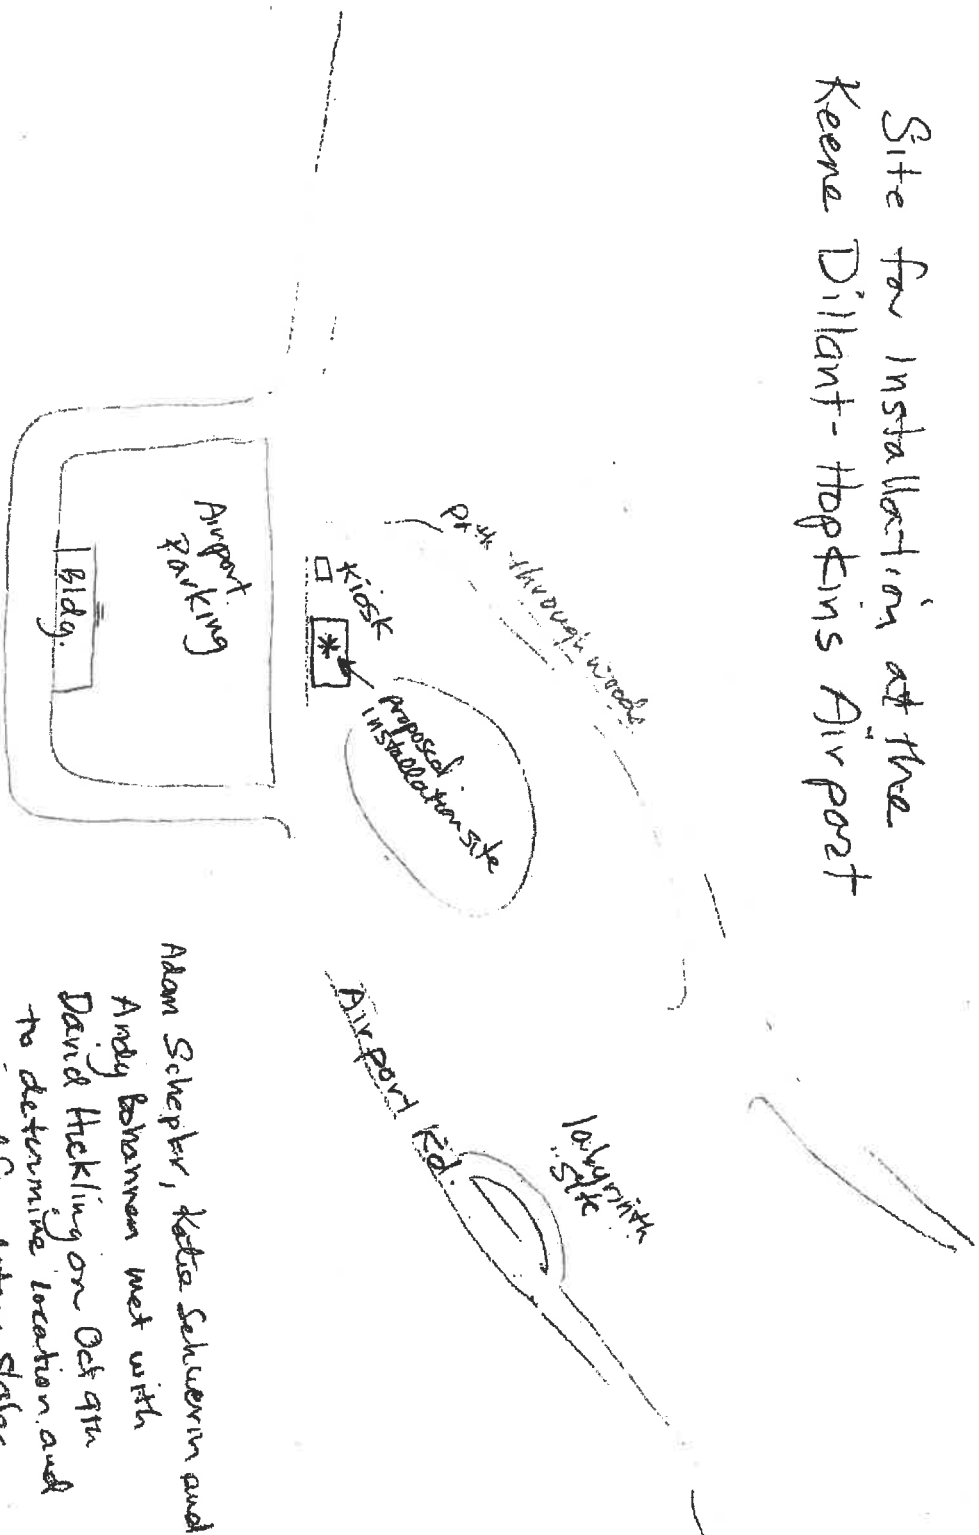 Site for Installation at the
Keene Dillant-Hopkins Airport
Path through woods
Kiosk
proposed
installation site
Airport
Parking
Bldg.
labyrinth
site
Airport Rd.
Adam Schepker, Katie Schwerin and
Andy Bohannon met with
David Hickling on Oct 9th
to determine location and